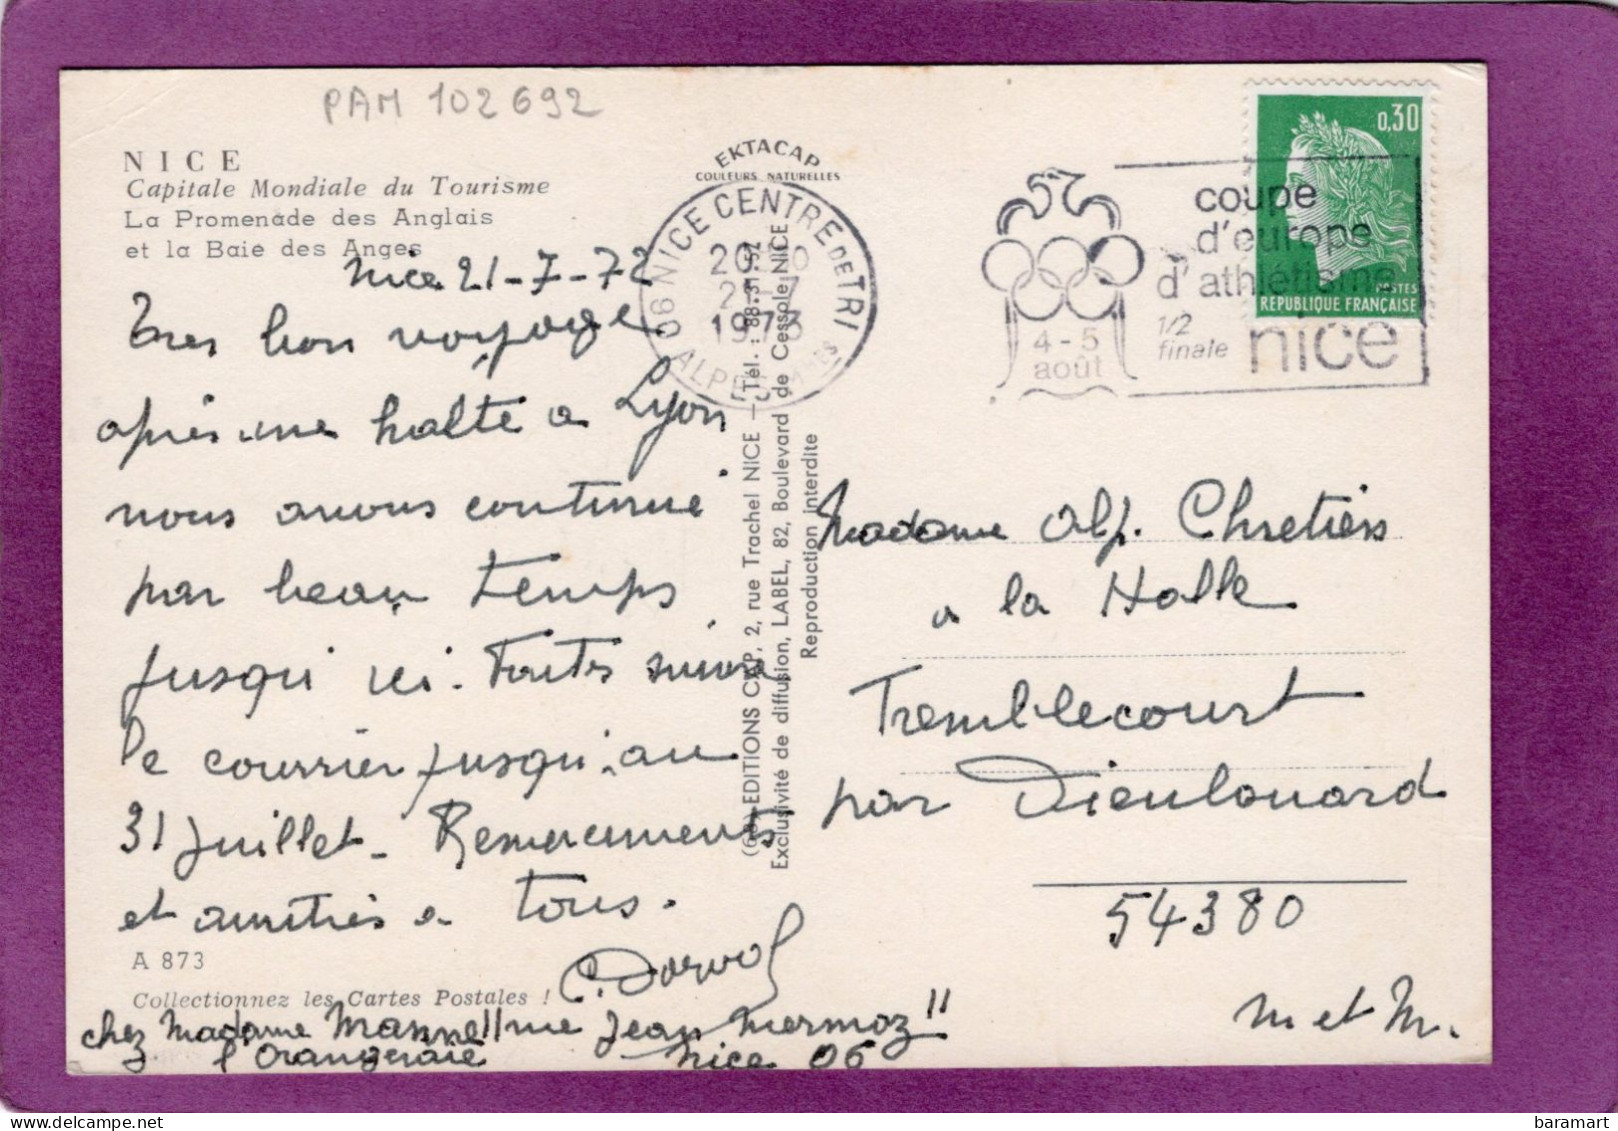 PAM 102692
NICE
Capitale Mondiale du Tourisme
La Promenade des Anglais
et la Baie des Anges
Nice 21-7-72
Tres bon voyage
après une halte a Lyon
nous avons continué
par beau temps
jusqu'ici. Faites suivre
le courrier jusqu'au
31 juillet - Remerciements
et amitiés a tous.
C. Dorvol
A 873
Collectionnez les Cartes Postales !
chez Madame 11 rue Jean Mermoz
l'Orangeraie Nice 06
EKTACAP
COULEURS NATURELLES
06 NICE CENTRE DE TRI
1973
(06) EDITIONS CAP, 2, rue Trachel NICE — Tél. : 88.31.52
Exclusivité de diffusion, LABEL, 82, Boulevard de Cessole NICE
Reproduction interdite
4-5
août
coupe
d'europe
d'athlétisme
1/2
finale
nice
0,30
POSTES
REPUBLIQUE FRANÇAISE
Madame Alp. Chretien
a la Halle
Tremblecourt
par Dieulouard
54380
M et M.
baramart